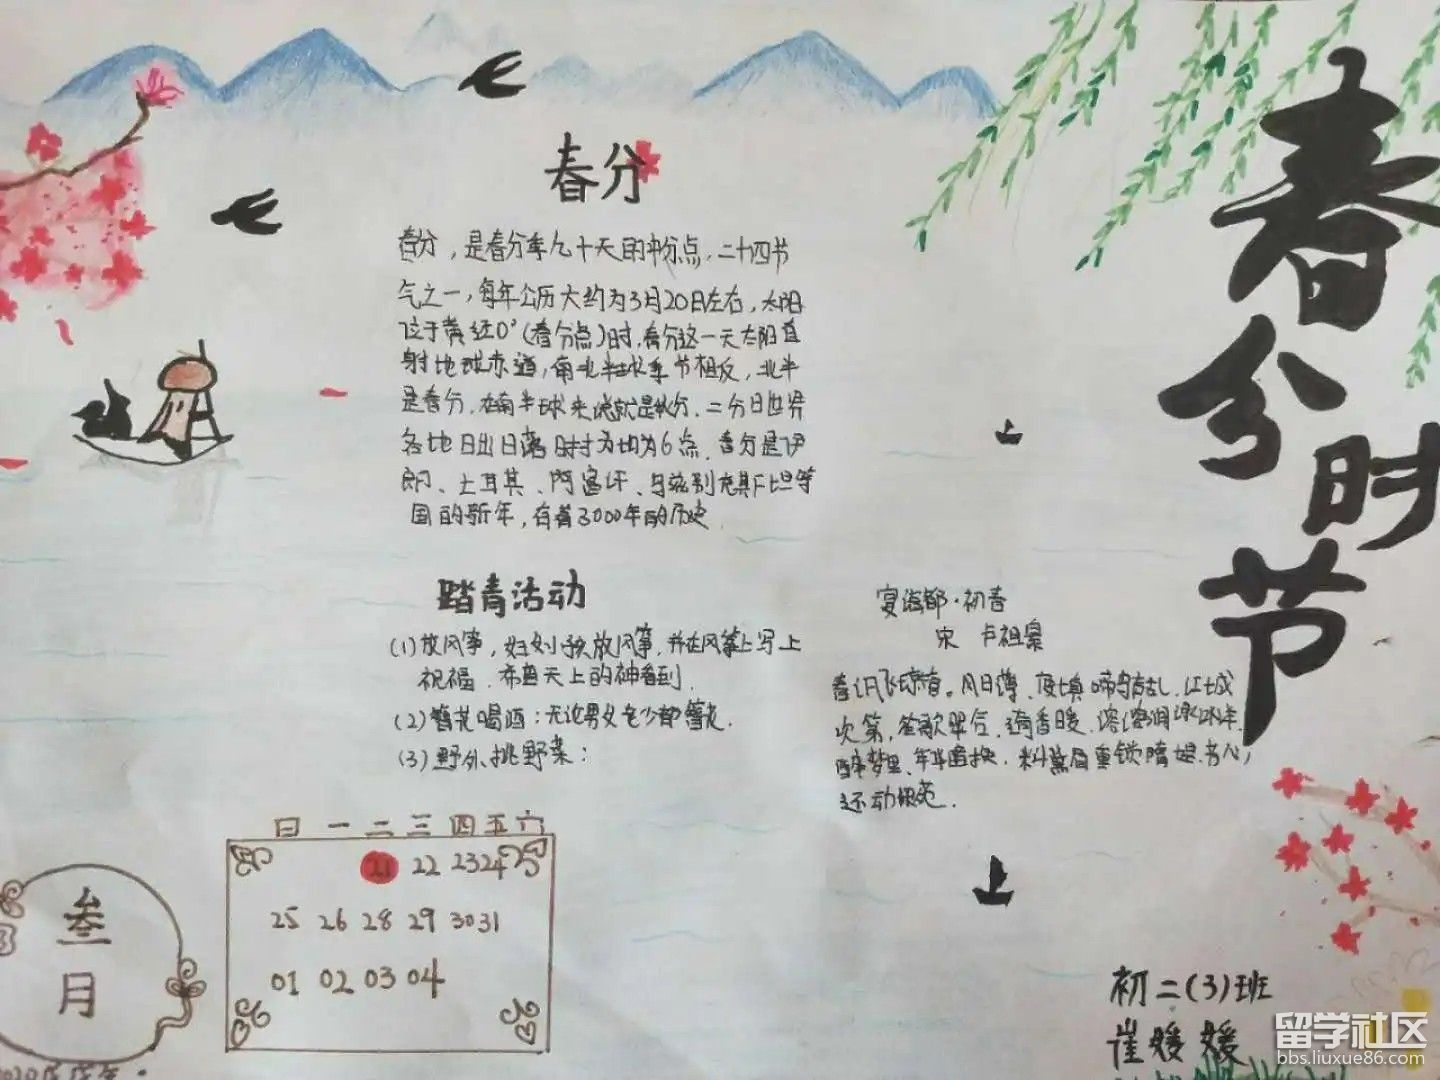 春分时节
春分
春分，是春分季九十天的中分点，二十四节
气之一，每年公历大约为3月20日左右，太阳
位于黄经0°（春分点）时，春分这一天太阳直
射地球赤道，南北半球季节相反，北半
是春分，在南半球来说就是秋分，二分日世界
各地日出日落时寸为均为6点，春分是伊
朗、土耳其、阿富汗、乌兹别克其斤坦等
国的新年，有着3000年的历史
踏青活动
(1)放风筝，妇女小孩放风筝，并在风筝上写上
祝福，希望天上的神看到.
(2)簪花喝酒：无论男女老少都簪花.
(3)野外挑野菜：
宴清都·初春
宋 卢祖皋
春讯飞琼管。风日薄，度墙啼鸟声乱，江城
次第，笙歌翠合，绮香暖，溶溶涧渌冰泮，
醉梦里、年华暗换，料黛眉重锁隋堤，芳心
还动
日 一 二 三 四 五 六
21 22 23 24
25 26 28 29 30 31
01 02 03 04
叁
月
初二(3)班
崔媛媛
留学社区
bbs.liuxue86.com